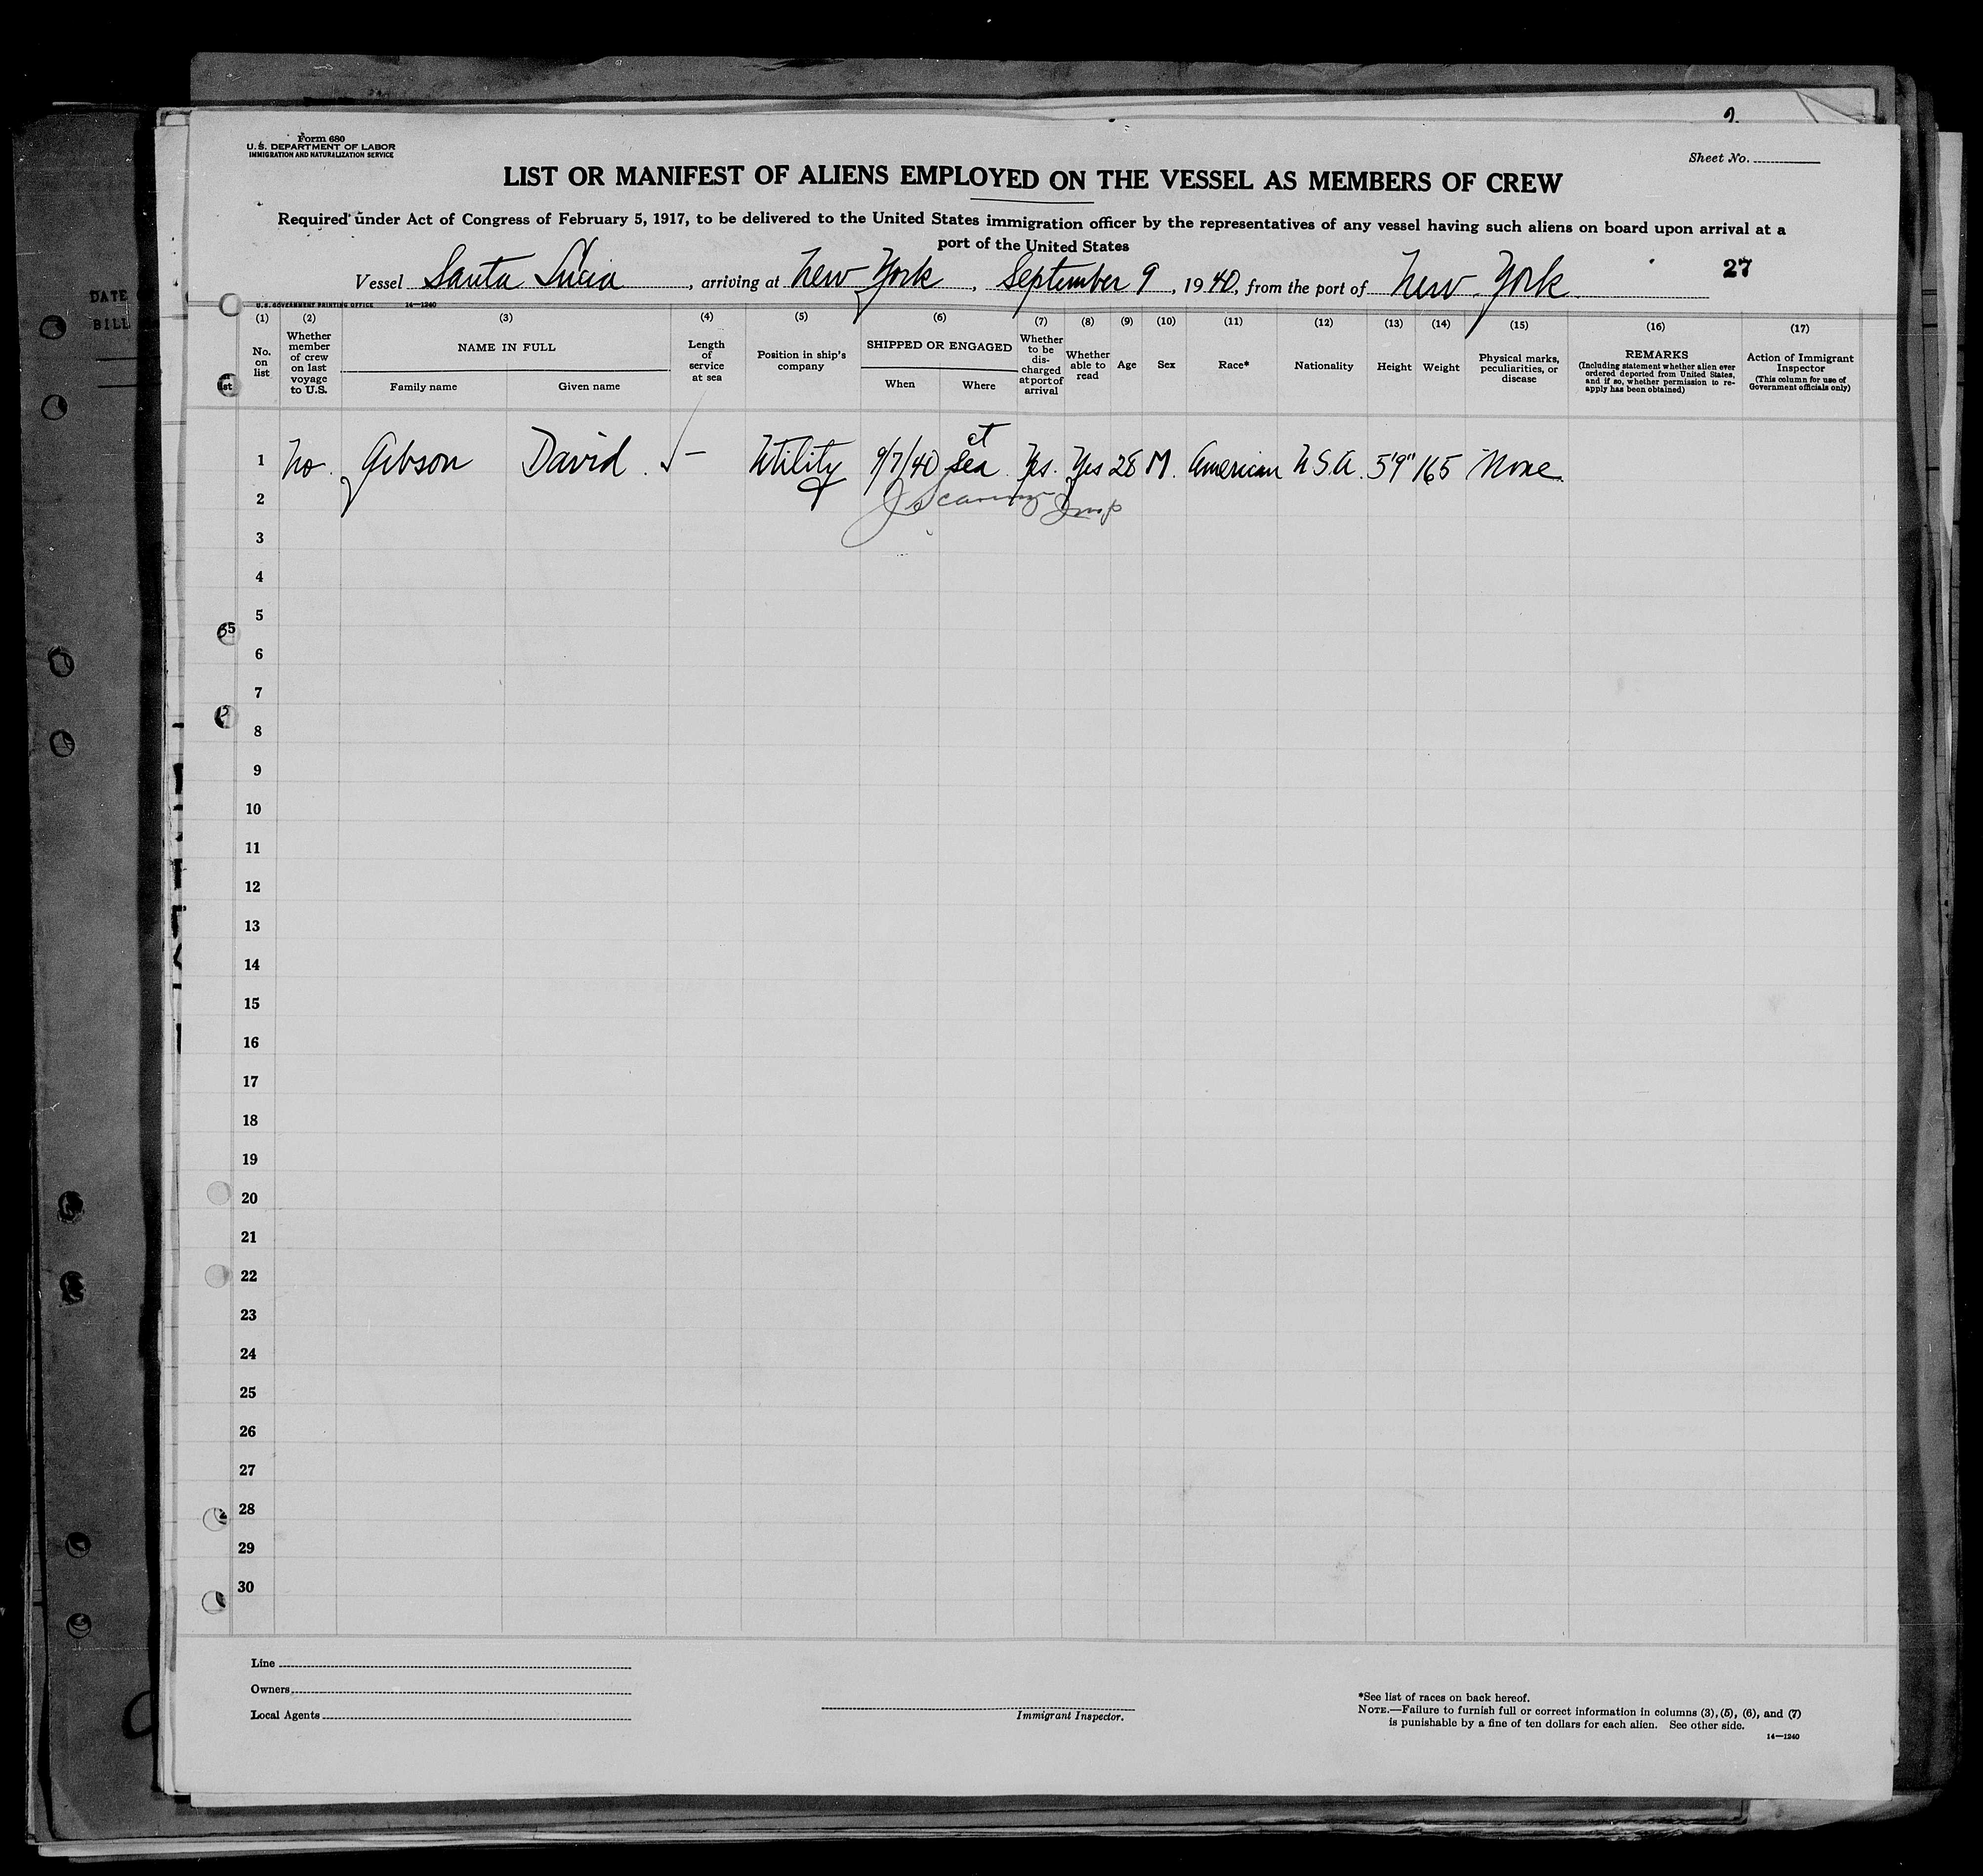 Form 680
U. S. DEPARTMENT OF LABOR
IMMIGRATION AND NATURALIZATION SERVICE
Sheet No.
LIST OR MANIFEST OF ALIENS EMPLOYED ON THE VESSEL AS MEMBERS OF CREW
Required under Act of Congress of February 5, 1917, to be delivered to the United States immigration officer by the representatives of any vessel having such aliens on board upon arrival at a
port of the United States
27
Vessel Santa Lucia, arriving at New York, September 9, 1940, from the port of New York
U. S. GOVERNMENT PRINTING OFFICE 14—1240
(1) (2) (3) (4) (5) (6) (7) (8) (9) (10) (11) (12) (13) (14) (15) (16) (17)
No. on list
Whether member of crew on last voyage to U.S.
NAME IN FULL
Family name
Given name
Length of service at sea
Position in ship's company
SHIPPED OR ENGAGED
When
Where
Whether to be discharged at port of arrival
Whether able to read
Age
Sex
Race*
Nationality
Height
Weight
Physical marks, peculiarities, or disease
REMARKS
(Including statement whether alien ever ordered deported from United States, and if so, whether permission to re-apply has been obtained)
Action of Immigrant Inspector
(This column for use of Government officials only)
1 No. Gibson David. — Utility 9/7/40 at Sea. Yes. Yes 28 M. American U.S.A. 5'9" 165 None.
2
3
4
5
6
7
8
9
10
11
12
13
14
15
16
17
18
19
20
21
22
23
24
25
26
27
28
29
30
Line
Owners
Local Agents
Immigrant Inspector.
*See list of races on back hereof.
NOTE.—Failure to furnish full or correct information in columns (3), (5), (6), and (7)
is punishable by a fine of ten dollars for each alien. See other side.
14—1240
DATE
BILL